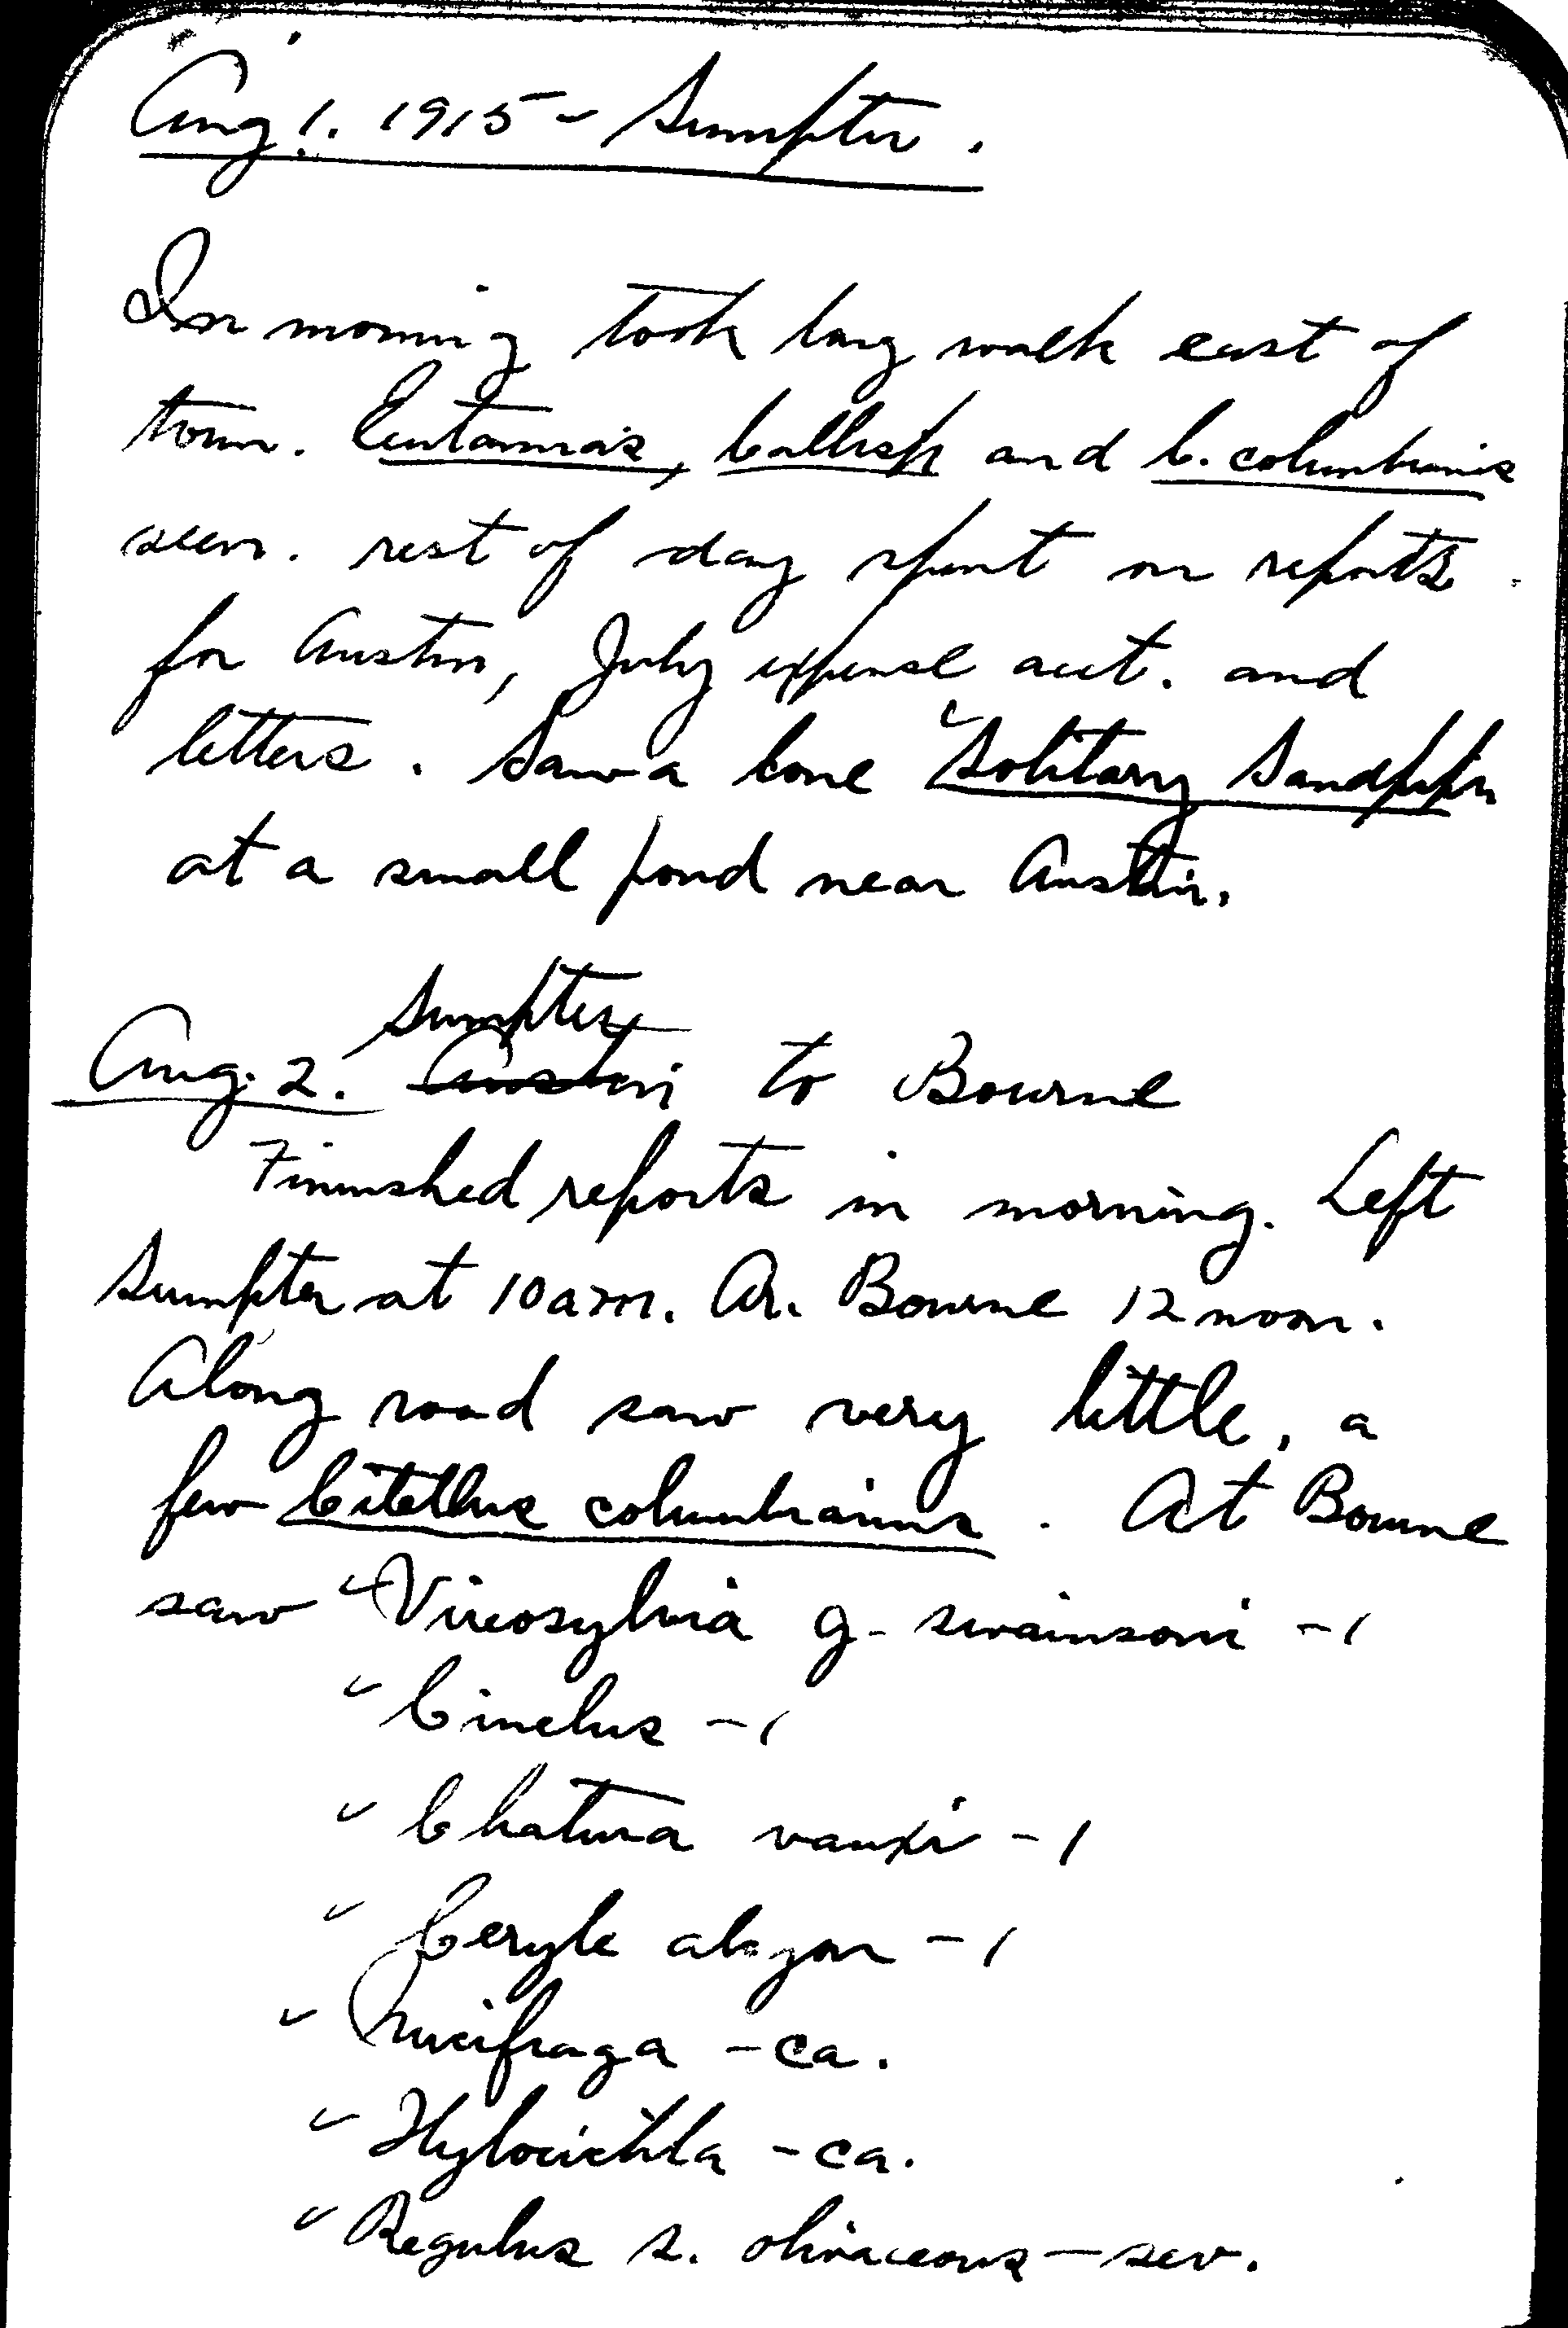 Aug 1. 1915 - Sumpter.
In morning took long walk east of
town. Eutamias, Callosp and C. columbianus
seen. rest of day spent on reports
for Austin, July expense acct. and
letters. Saw a lone Solitary Sandpiper
at a small pond near Austin.
Sumpter
Aug. 2. Austin to Bourne
Finished reports in morning. Left
Sumpter at 10 a.m. Ar. Bourne 12 noon.
Along road saw very little, a
few Citellus columbianus. At Bourne
saw ✓Vireosylvia g. swainsoni - 1
✓ Cinclus - 1
✓ Chatura vauxi - 1
✓ Ceryle alcyon - 1
✓ Nucifraga - ca.
✓ Hylocichla - ca.
✓ Regulus s. olivaceous - sev.